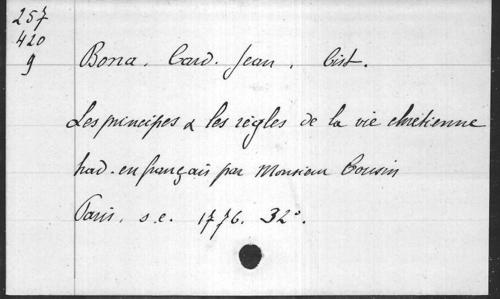 257
420
9
Bona, Card. Jean, Cist.
Les principes & les règles de la vie chrétienne
trad. en français par Monsieur Cousin
Paris, s.e. 1776. 32°.